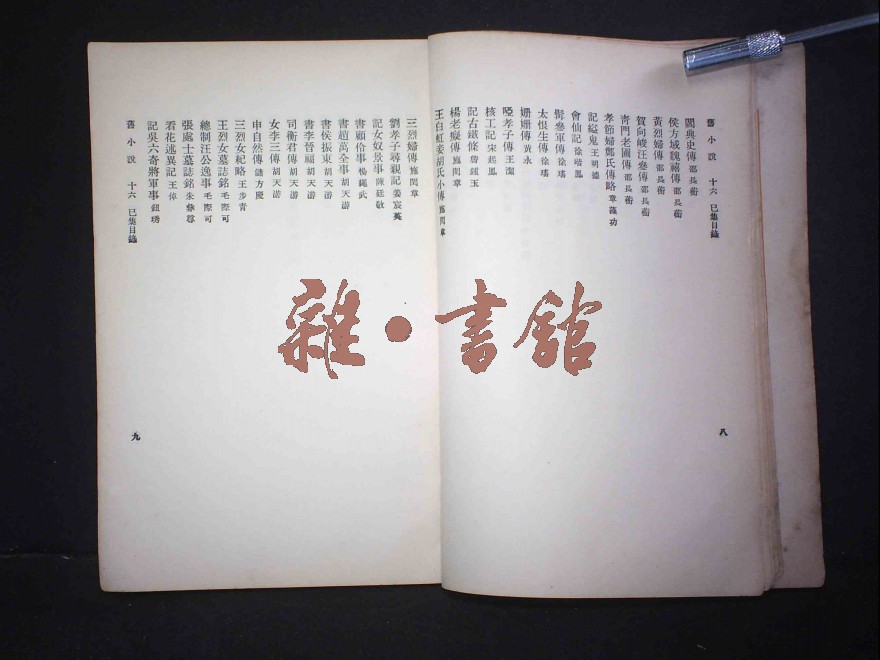 舊小說 十六 已集目錄
閻典史傳 邵長蘅
侯方域魏禧傳 邵長蘅
黃烈婦傳 邵長蘅
賀向峻汪參傳 邵長蘅
青門老圃傳 邵長蘅
孝節婦鄭氏傳略 章藻功
記縊鬼 王明德
會仙記 徐喈鳳
髯參軍傳 徐瑤
太恨生傳 徐瑤
姍姍傳 黃永
啞孝子傳 王潔
核工記 宋起鳳
記古鐵條 詹鍾玉
楊老癡傳 施閏章
王白虹妾胡氏小傳 施閏章
八
三烈婦傳 施閏章
劉孝子尋親記 姜宸英
記女奴景事 陳廷敬
書顧伶事 楊繩武
書趙萬全事 胡天游
書侯振東 胡天游
書李晉福 胡天游
司衡君傳 胡天游
女李三傳 胡天游
申自然傳 儲方慶
三烈女紀略 王步青
王烈女墓誌銘 毛際可
總制汪公逸事 毛際可
張處士墓誌銘 朱彝尊
看花述異記 王倬
記吳六奇將軍事 鈕琇
舊小說 十六 已集目錄
九
雜·書館